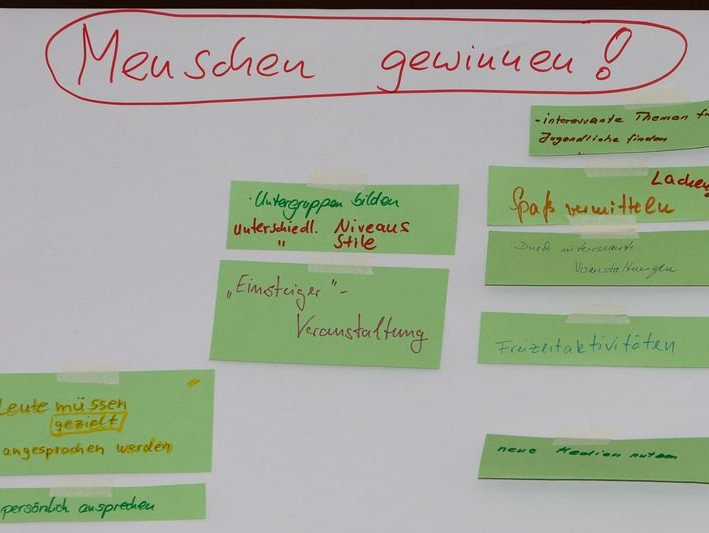 Menschen gewinnen!
- interessante Themen für
Jugendliche finden
Lachen
Spaß vermitteln
Durch interessante
Veranstaltungen
Freizeitaktivitäten
neue Medien nutzen
· Untergruppen bilden
unterschiedl. Niveaus
" Stile
„Einsteiger"-
Veranstaltung
Leute müssen
gezielt
angesprochen werden
persönlich ansprechen